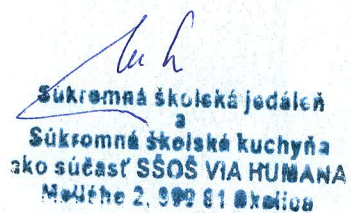 Súkromná školská jedáleň
a
Súkromná školská kuchyňa
ako súčasť SŠOŠ VIA HUMANA
Mallého 2, 909 01 Skalica